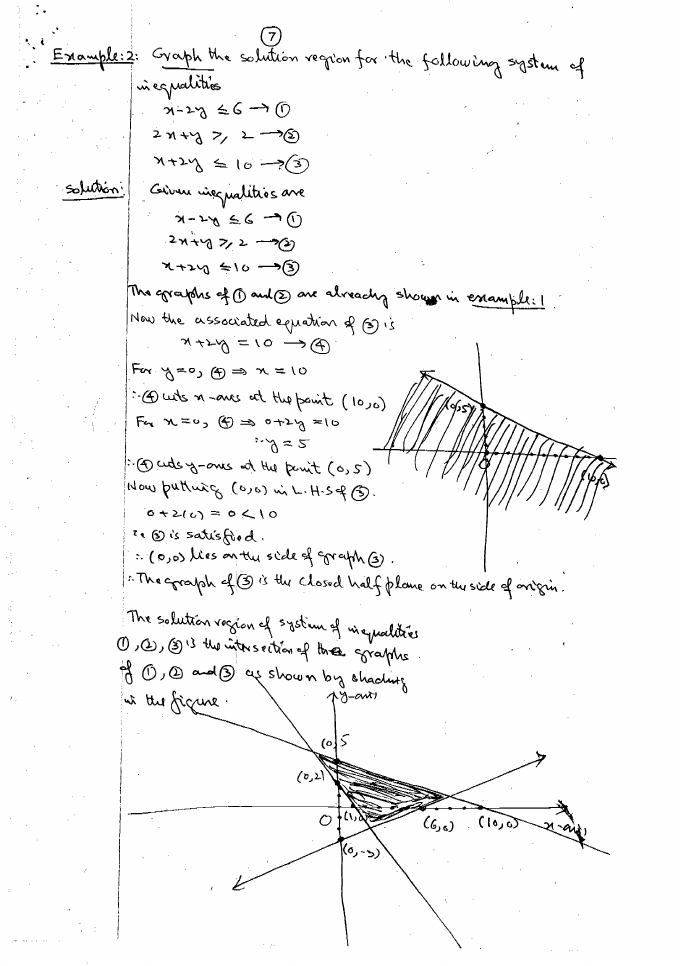 7
Example:2: Graph the solution region for the following system of
inequalities
x-2y ≤ 6 → ①
2x+y ≥ 2 → ②
x+2y ≤ 10 → ③
Solution: Given inequalities are
x-2y ≤ 6 → ①
2x+y ≥ 2 → ②
x+2y ≤ 10 → ③
The graphs of ① and ② are already shown in example:1
Now the associated equation of ③ is
x+2y = 10 → ④
For y=0, ④ ⇒ x = 10
∴ ④ cuts x-axes at the point (10,0)
For x=0, ④ ⇒ 0+2y = 10
∴ y = 5
∴ ④ cuts y-axes at the point (0,5)
Now putting (0,0) in L.H.S of ③.
0+2(0) = 0 < 10
i.e ③ is satisfied.
∴ (0,0) lies on the side of graph ③.
∴ The graph of ③ is the closed half plane on the side of origin.
(0,5)
O
(10,0)
The solution region of system of inequalities
①, ②, ③ is the intersection of the graphs
of ①, ② and ③ as shown by shading
in the figure.
y-axis
(0,5
(0,2)
O
(1,0)
(6,0)
(10,0)
x-axis
(0,-3)